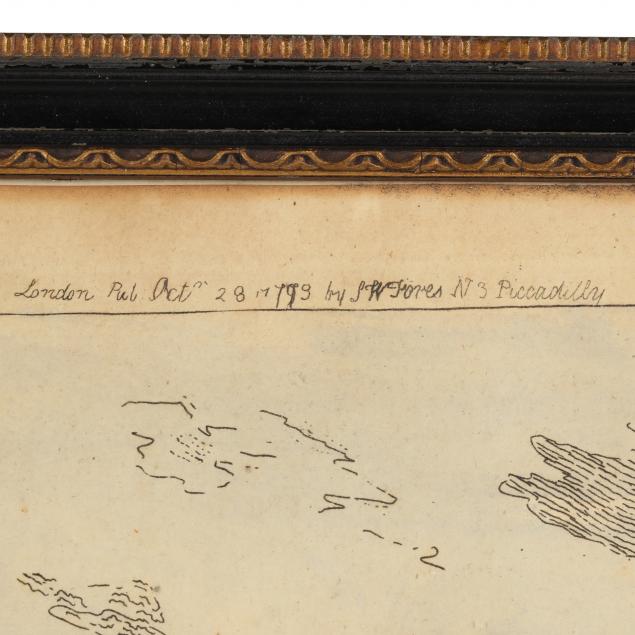 London Pub Octr 28 1793 by S W Fores N 3 Piccadilly